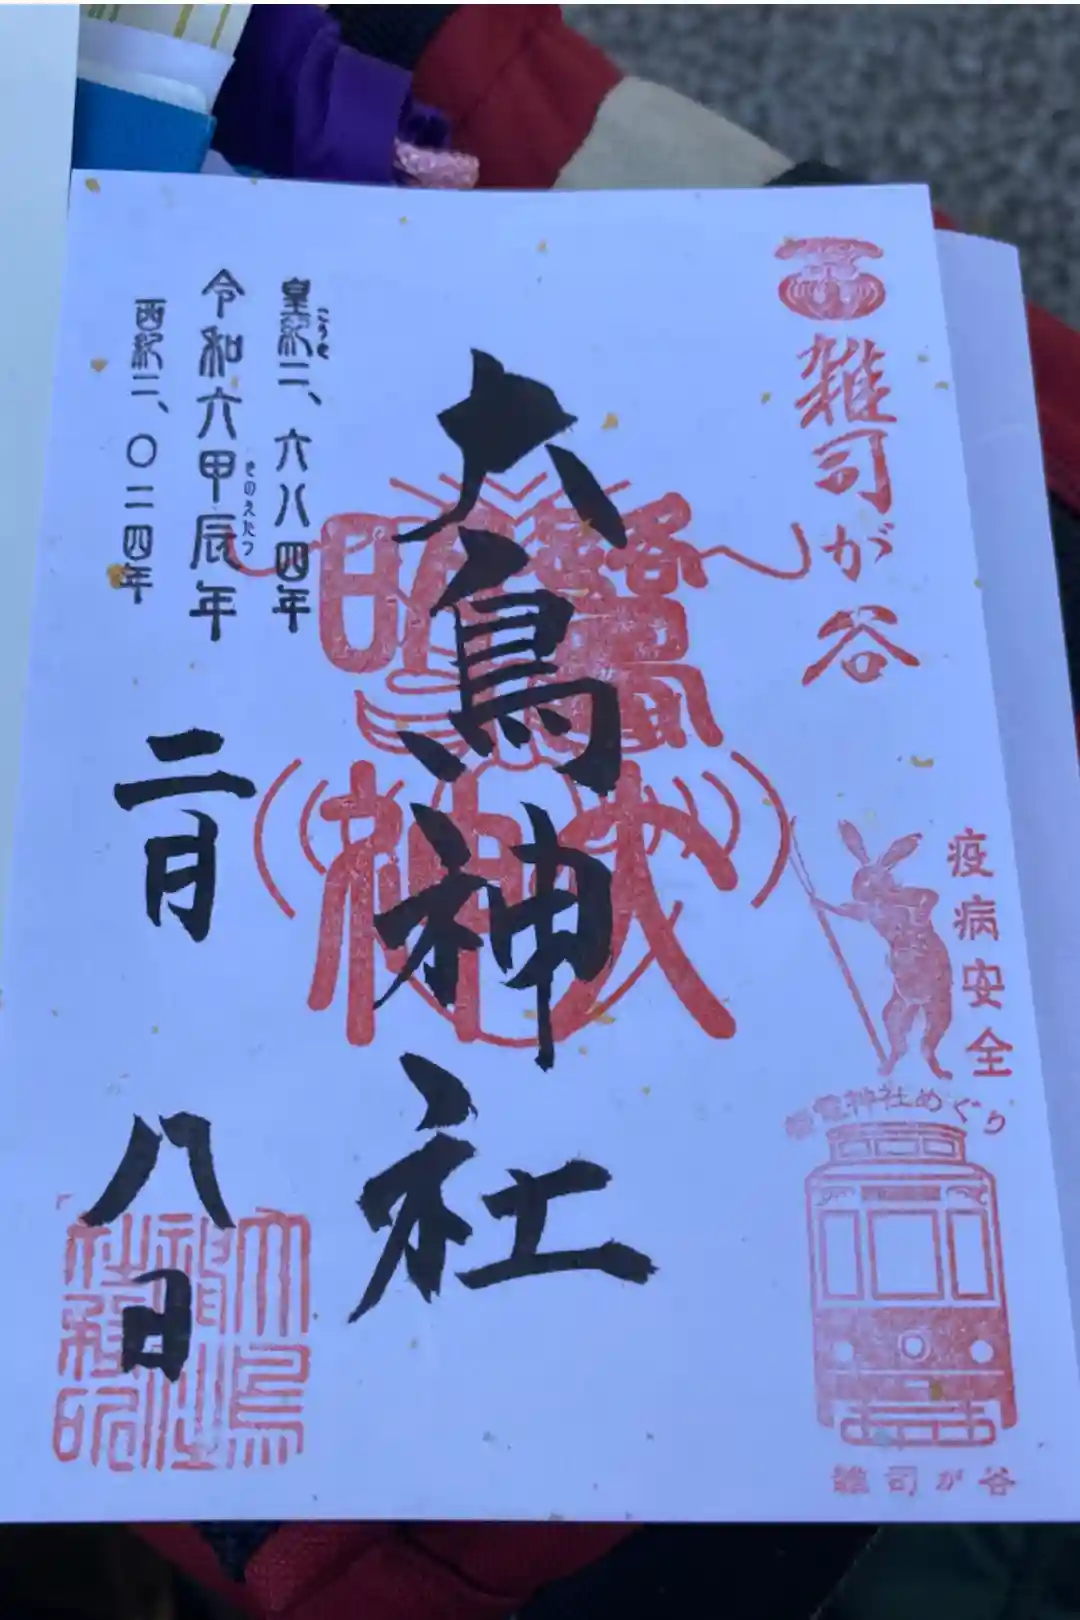 雑司が谷
疫病安全
神社めぐり
雑司が谷
大鳥神社
皇紀二、六八四年
こうき
令和六甲辰年
きのえたつ
西紀二、〇二四年
二月八日
大鳥
神社
社務印